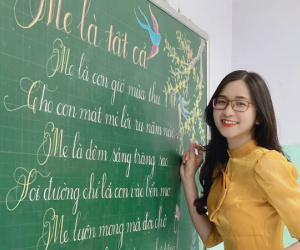 Mẹ là tất cả
Mẹ là cơn gió mùa thu
Cho con mát mẻ lời ru năm nào
Mẹ là đêm sáng trăng sao
Soi đường chỉ lối con vào bến mơ
Mẹ luôn mong mỏi đợi chờ